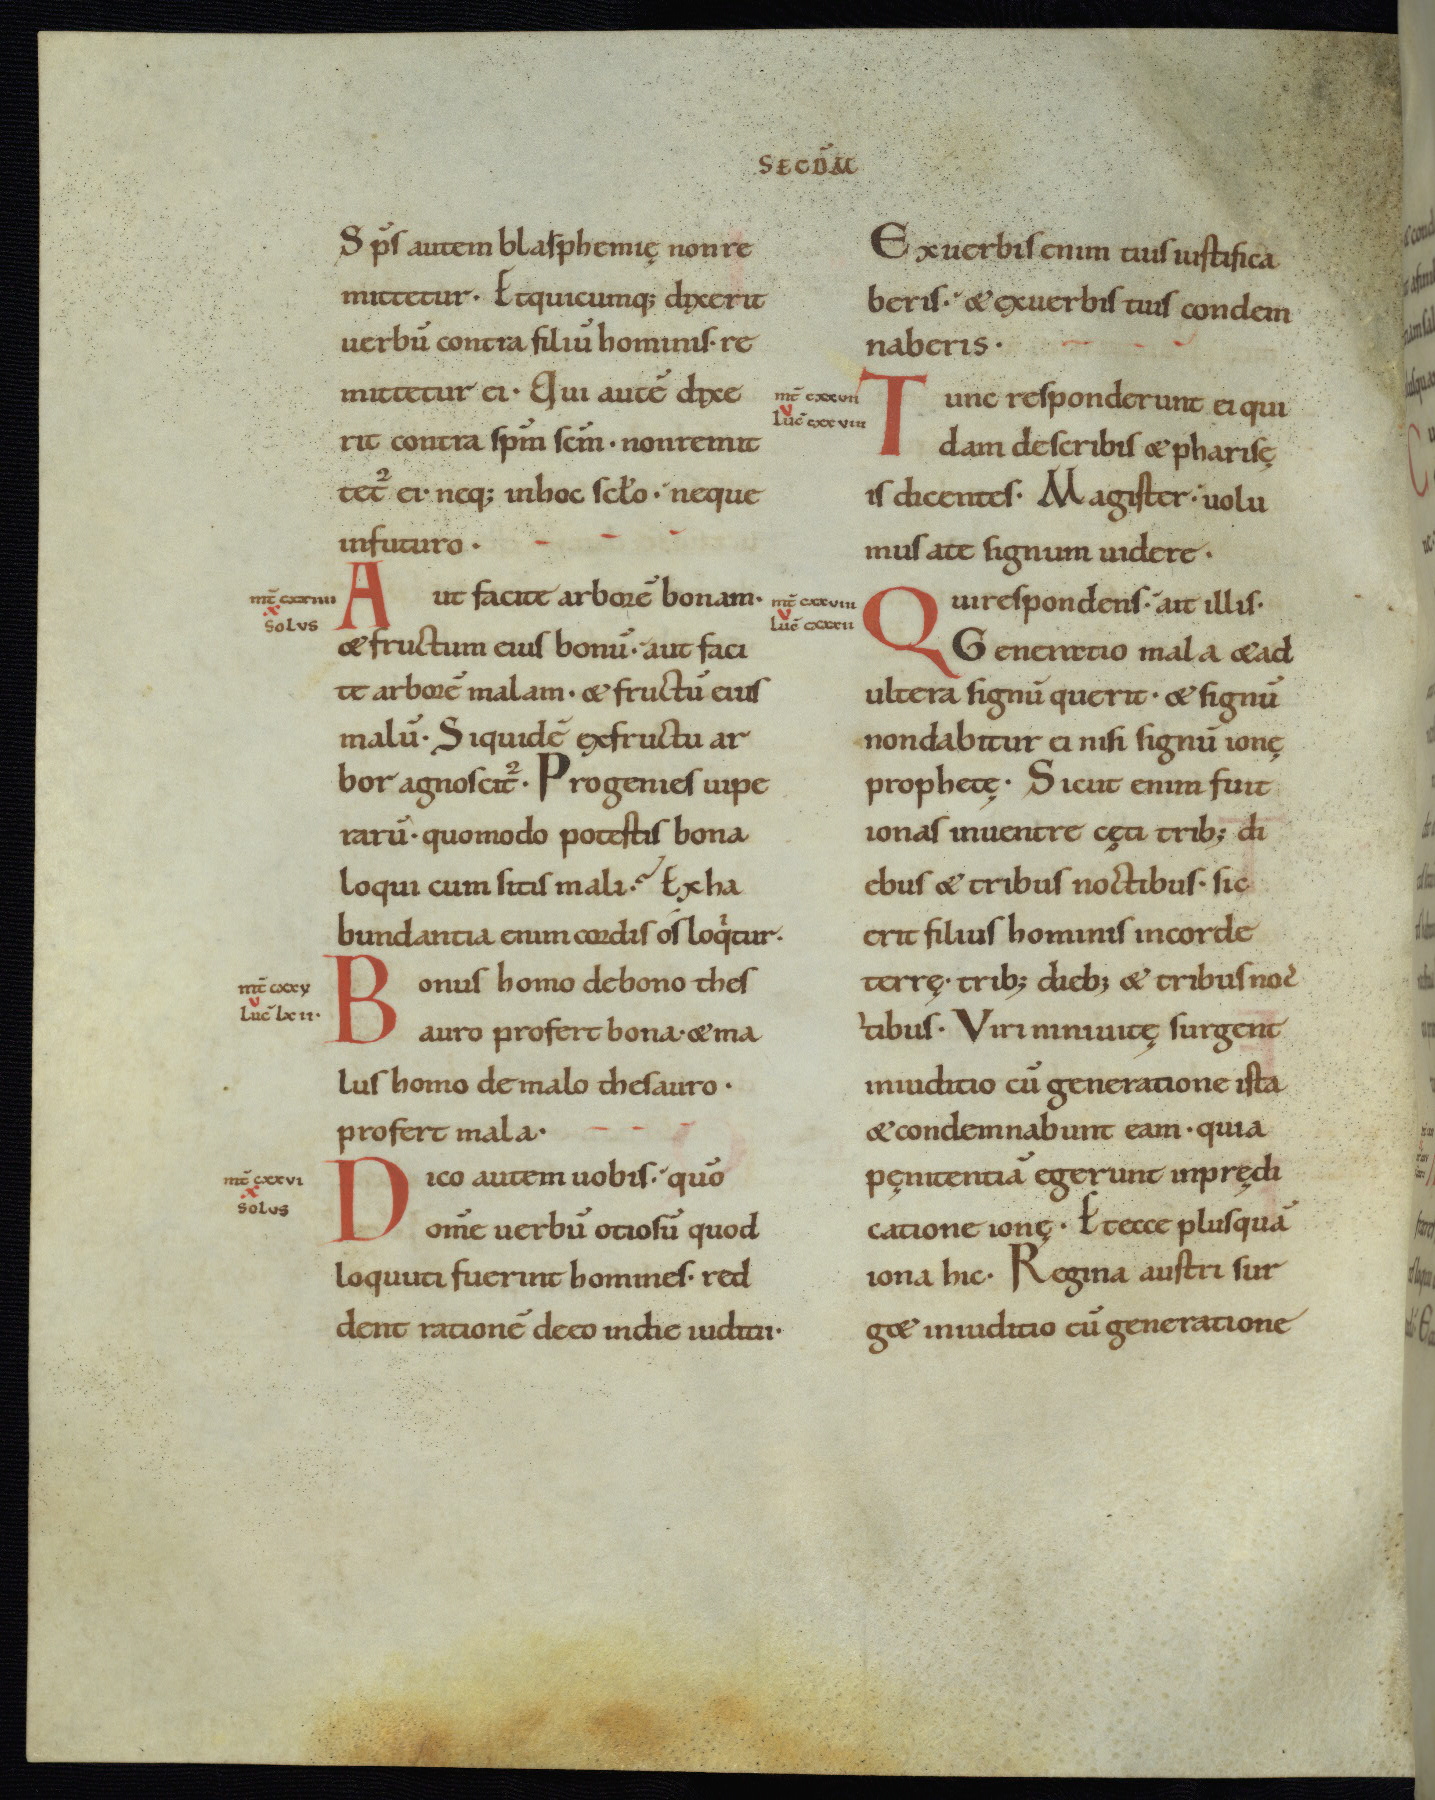 SECDM̄
Sp̄s autem blasphemię non re
mittetur. Et quicumq; dixerit
uerbū contra filiū hominis. re
mittetur ei. Qui autē dixe
rit contra sp̄m sc̄m. non remit
tet̄ ei. neq; in hoc sclo. neque
in futuro.
mt̄ cxxiiii
x
solus
Aut facite arborē bonam.
& fructum eius bonū. aut faci
te arborē malam. & fructū eius
malū. Siquidē ex fructu ar
bor agnoscit̄. Progenies uipe
rarū. quomodo potestis bona
loqui cum sitis mali. Ex ha
bundantia enim cordis os loqͥtur.
mt̄ cxxv
v
Luc̄ lxii.
Bonus homo de bono thes
auro profert bona. & ma
lus homo de malo thesauro.
profert mala.
mt̄ cxxvi
x
solus
Dico autem uobis. quō
om̄e uerbū otiosū quod
loquuti fuerint homines. red
dent rationē de eo in die iuditii.
Ex uerbis enim tuis iustifica
beris. & ex uerbis tuis condem
naberis.
mt̄ cxxvii
v
Luc̄ cxxviii
Tunc responderunt ei qui
dam de scribis & pharisę
is dicentes. Magister. uolu
mus a te signum uidere.
mt̄ cxxviii
v
Luc̄ cxxxii
Qui respondens. ait illis.
Generatio mala & ad
ultera signū querit. & signū
non dabitur ei nisi signū ionę
prophetę. Sicut enim fuit
ionas in uentre cęti trib; di
ebus & tribus noctibus. sic
erit filius hominis in corde
terrę. trib; dieb; & tribus noc
tibus. Viri niniuitę surgent
in iuditio cū generatione ista
& condemnabunt eam. quia
pęnitentiā egerunt in prędi
catione ionę. Et ecce plus quā
iona hic. Regina austri sur
g& in iuditio cū generatione